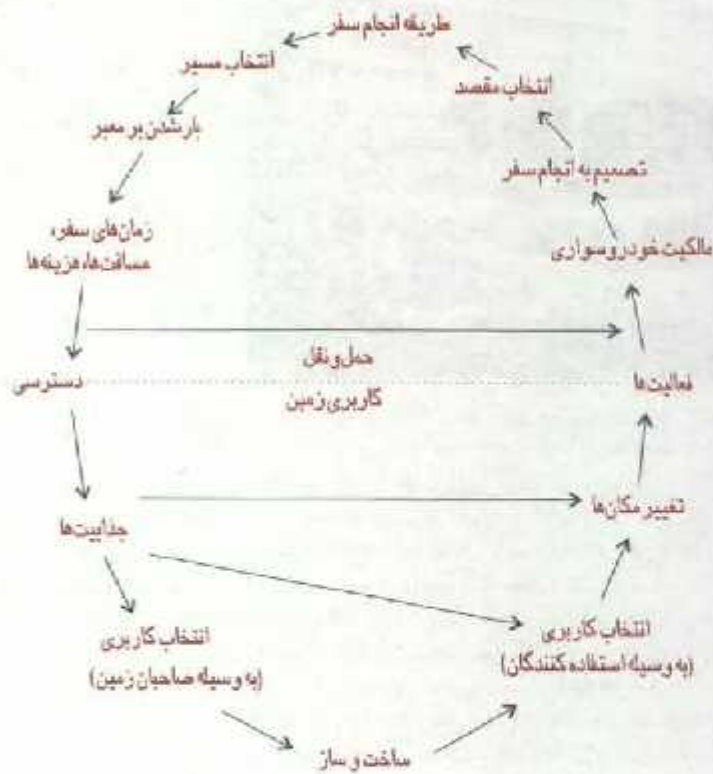 طریقه انجام سفر
انتخاب مسیر
انتخاب مقصد
بار شدن بر معبر
تصمیم به انجام سفر
زمان‌های سفر،
مسافت‌ها، هزینه‌ها
مالکیت خودرو سواری
حمل و نقل
دسترسی
فعالیت‌ها
کاربری زمین
تغییر مکان‌ها
جذابیت‌ها
انتخاب کاربری
(به وسیله استفاده کنندگان)
انتخاب کاربری
(به وسیله صاحبان زمین)
ساخت و ساز